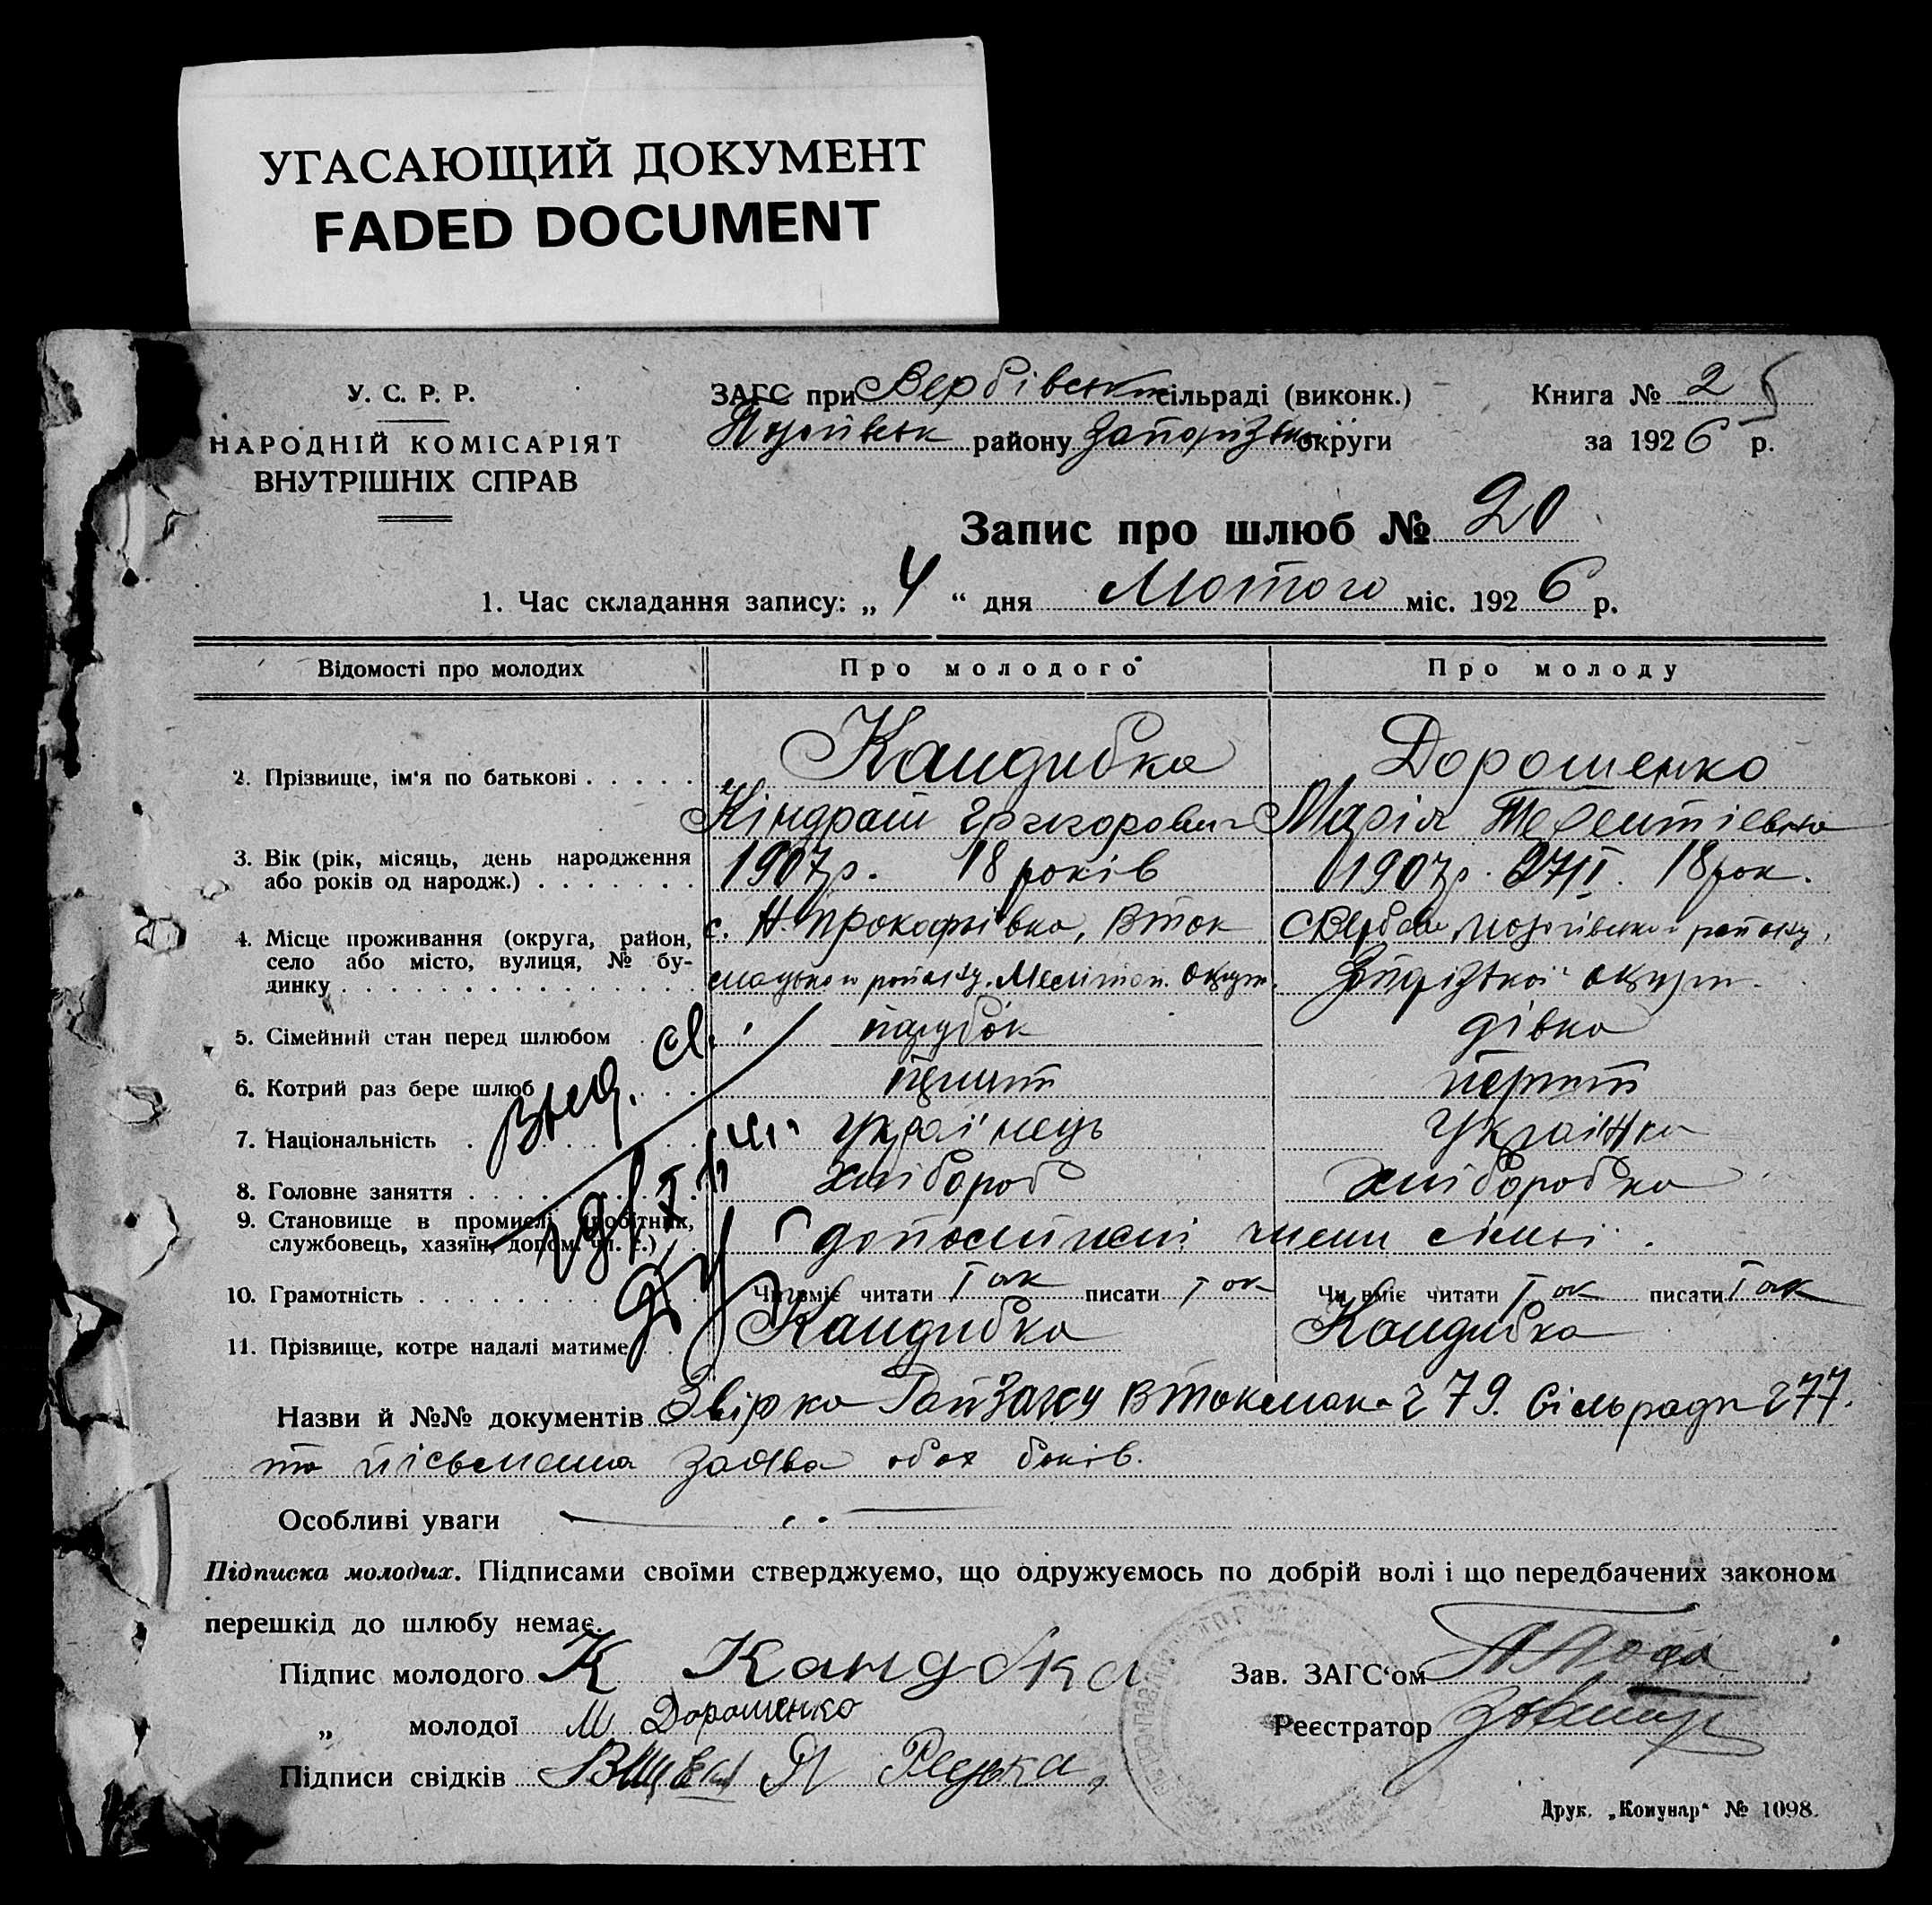 УГАСАЮЩИЙ ДОКУМЕНТ
FADED DOCUMENT
У. С. Р. Р.
НАРОДНІЙ КОМІСАРІЯТ
ВНУТРІШНІХ СПРАВ
ЗАГС при Вербівськ сільраді (виконк.)
району Запорізьк округи
Книга № 2
за 1926 р.
Запис про шлюб № 20
1. Час складання запису: „ 4 “ дня Лютого міс. 1926 р.
Відомості про молодих
Про молодого
Про молоду
2. Прізвище, ім'я по батькові
Кандибка
Дорошенко
Кіндрат Григорович
Марія Терентіевна
3. Вік (рік, місяць, день народження
або років од народж.)
1907р. 18 років
1907р. 27/І. 18 рок.
4. Місце проживання (округа, район,
село або місто, вулиця, № бу-
динку
с. Н. Прокофіївка, Вток
мацького району. Меліто­п. Округи.
с Вербове Пологівського району,
Запорізької округи.
5. Сімейний стан перед шлюбом
парубок
дівка
6. Котрий раз бере шлюб
перший
перший
7. Національність
українець
Українка
8. Головне заняття
хлібороб
хліборобка
9. Становище в промислі (робітник,
службовець, хазяїн, допом. чл. с.)
допоміжні члени сімьї.
10. Грамотність
Чи вміє читати Так писати Так
Чи вміє читати Так писати Так
11. Прізвище, котре надалі матиме
Кандибка
Кандибка
Выд. св.
Назви й №№ документів Звірка РайЗагсу Втокмака 279. Сільради 277.
та пісьмена заява обох боків.
Особливі уваги
Підписка молодих. Підписами своїми стверджуємо, що одружуємось по добрій волі і що передбачених законом
перешкід до шлюбу немає.
Підпис молодого К Кандбка
„ молодої М Дорошенко
Підписи свідків Редька
Зав. ЗАГС'ом
Реєстратор
Друк. „Комунар“ № 1098.